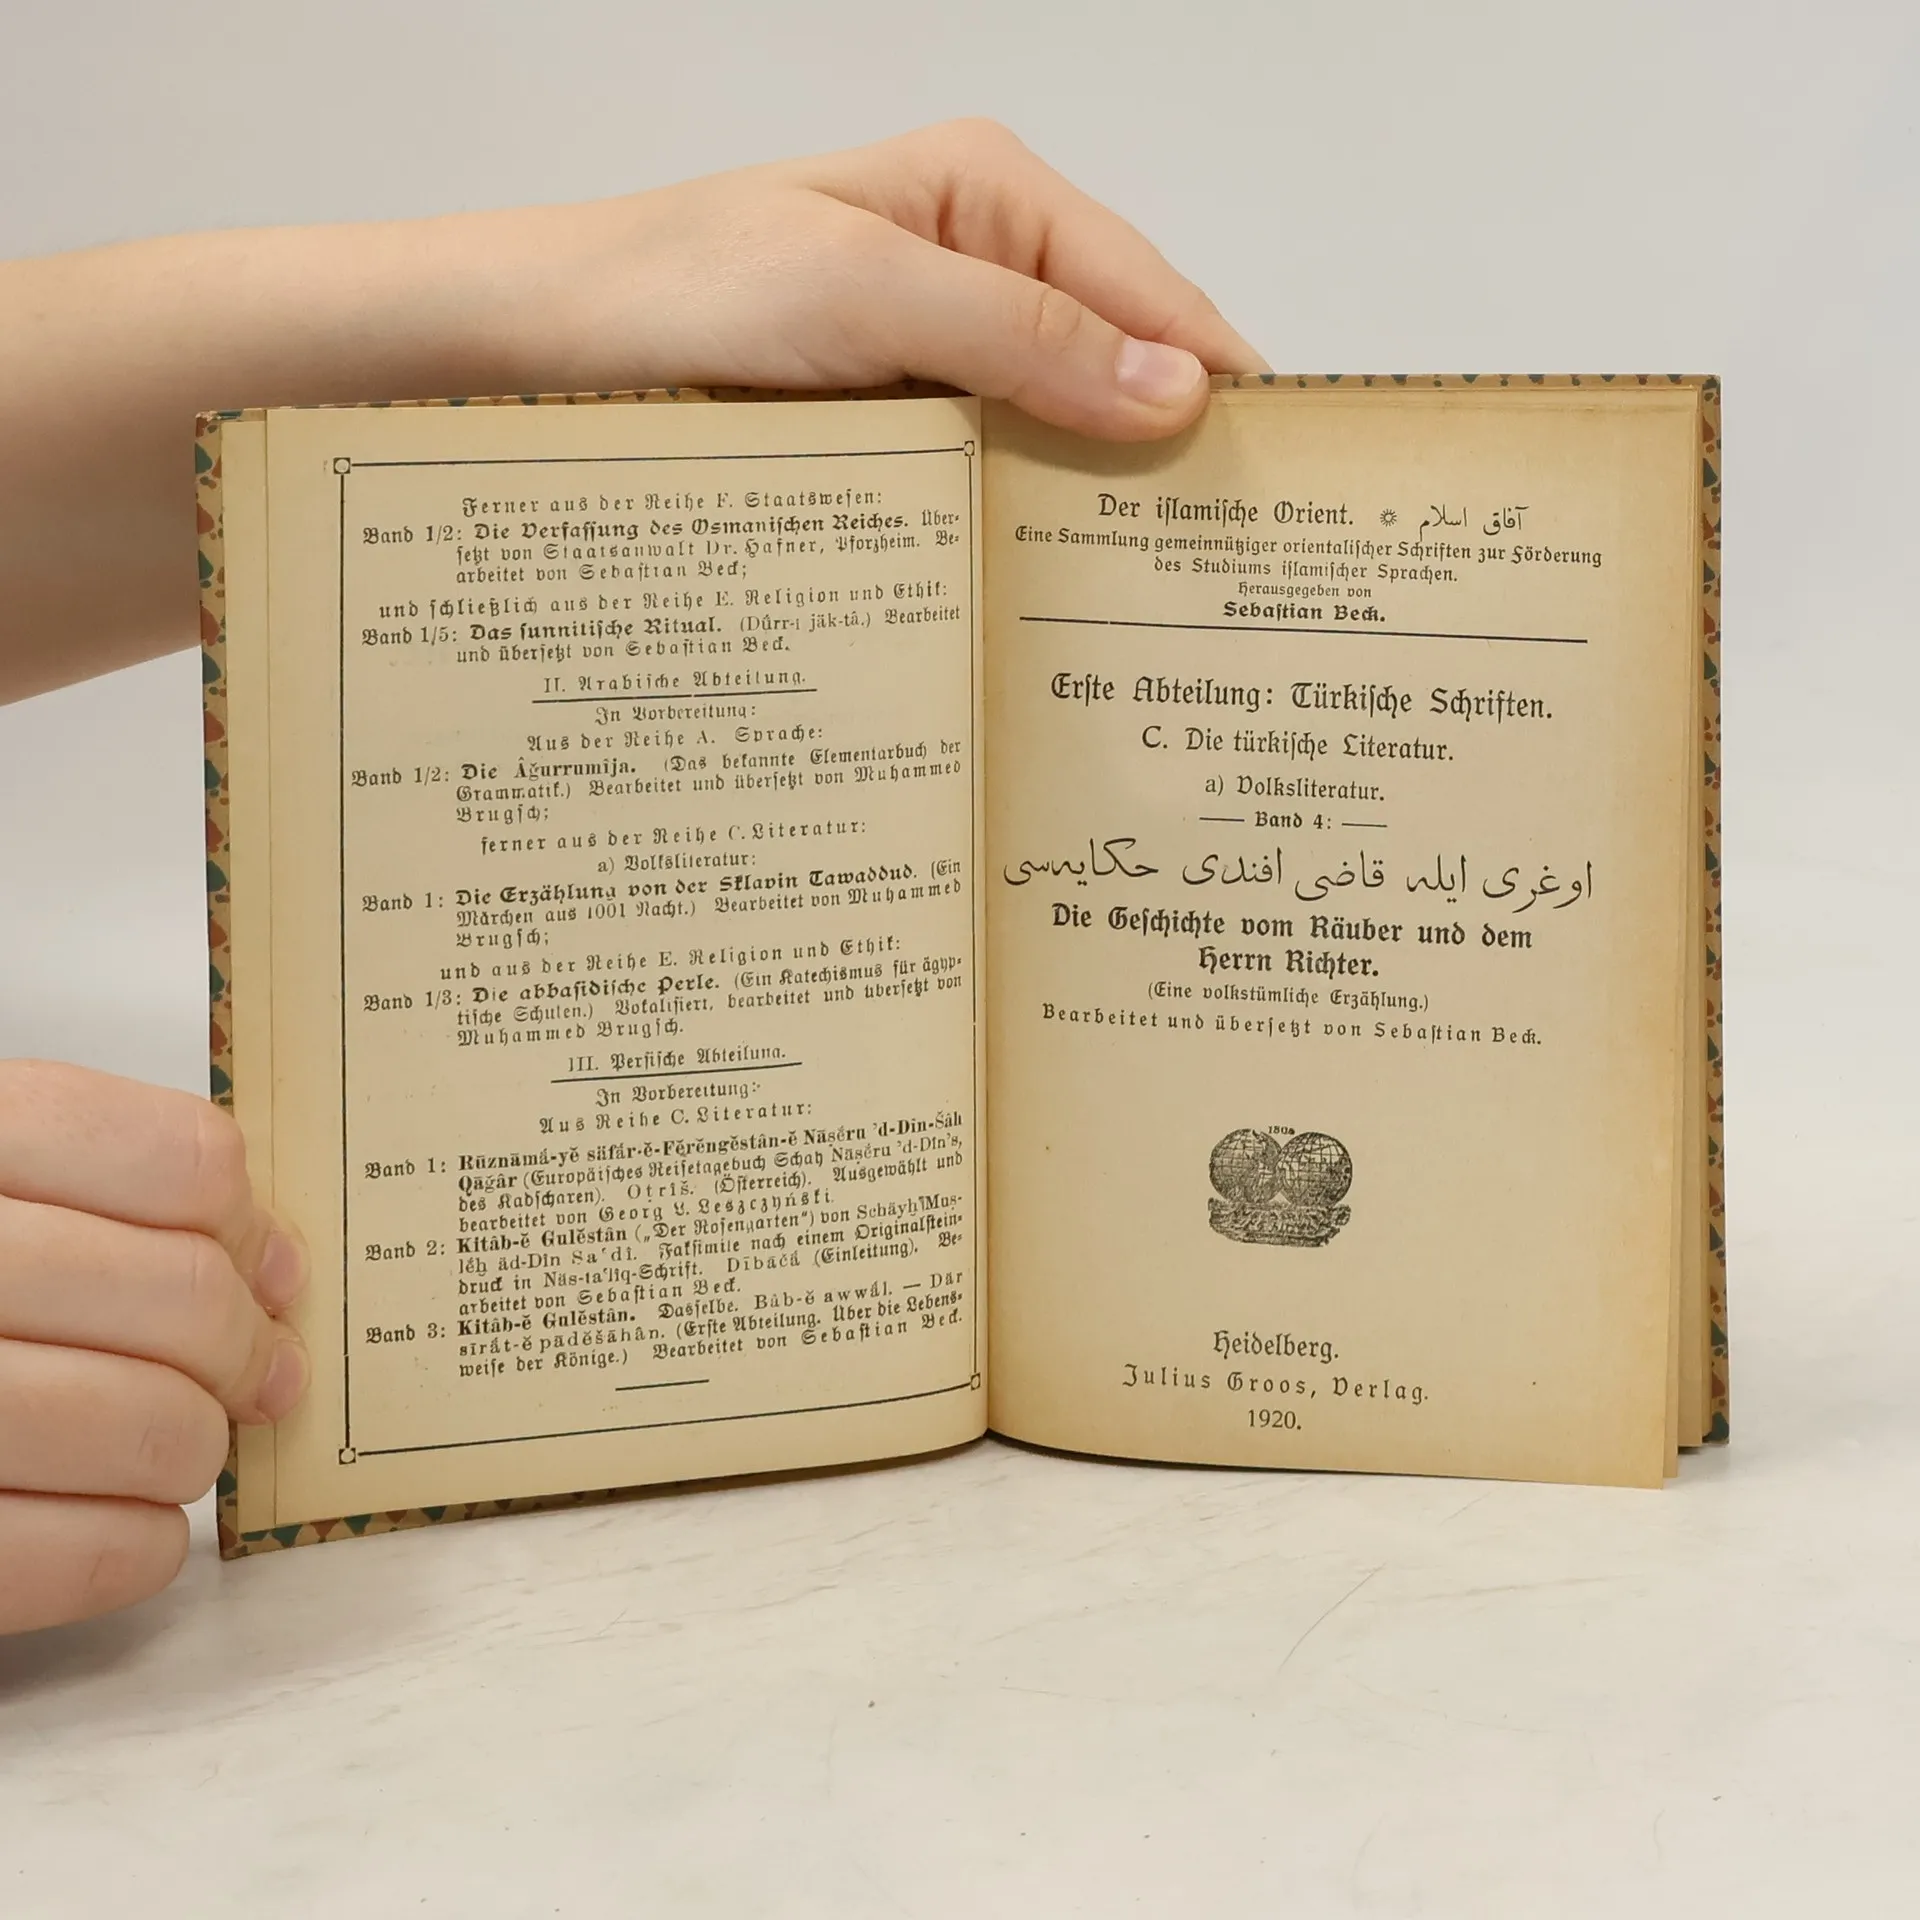 Ferner aus der Reihe F. Staatswesen:
Band 1/2: Die Verfassung des Osmanischen Reiches. Über-
setzt von Staatsanwalt Dr. Hafner, Pforzheim. Be-
arbeitet von Sebastian Beck;
und schließlich aus der Reihe E. Religion und Ethik:
Band 1/5: Das sunnitische Ritual. (Dúrr-i jäk-tâ.) Bearbeitet
und übersetzt von Sebastian Beck.
II. Arabische Abteilung.
In Vorbereitung:
Aus der Reihe A. Sprache:
Band 1/2: Die Âǧurrumîja. (Das bekannte Elementarbuch der
Grammatik.) Bearbeitet und übersetzt von Muhammed
Brugsch;
ferner aus der Reihe C. Literatur:
a) Volksliteratur:
Band 1: Die Erzählung von der Sklavin Tawaddud. (Ein
Märchen aus 1001 Nacht.) Bearbeitet von Muhammed
Brugsch;
und aus der Reihe E. Religion und Ethik:
Band 1/3: Die abbasidische Perle. (Ein Katechismus für ägyp-
tische Schulen.) Vokalisiert, bearbeitet und übersetzt von
Muhammed Brugsch.
III. Persische Abteilung.
In Vorbereitung:
Aus Reihe C. Literatur:
Band 1: Rūznāmā́-yĕ säfär-ĕ-Fĕrĕngĕstân-ĕ Nāṣĕru 'd-Dîn-Šâh
Qāǧâr (Europäisches Reisetagebuch Schah Nāṣĕru 'd-Dîn's,
des Kadscharen). Oṭrîš. (Österreich). Ausgewählt und
bearbeitet von Georg L. Leszczyński.
Band 2: Kitâb-ĕ Gulĕstân („Der Rosengarten“) von Schäyḫ Muṣ-
lĕḥ äd-Dîn Sa'dî. Faksimile nach einem Originalstein-
druck in Näs-ta'lîq-Schrift. Dîbāčä́ (Einleitung). Be-
arbeitet von Sebastian Beck.
Band 3: Kitâb-ĕ Gulĕstân. Dasselbe. Bâb-ĕ awwál. — Där
sīrä́t-ĕ pādĕšāhân. (Erste Abteilung. Über die Lebens-
weise der Könige.) Bearbeitet von Sebastian Beck.
Der islamische Orient. ☼ آفاق اسلام
Eine Sammlung gemeinnütziger orientalischer Schriften zur Förderung
des Studiums islamischer Sprachen.
Herausgegeben von
Sebastian Beck.
Erste Abteilung: Türkische Schriften.
C. Die türkische Literatur.
a) Volksliteratur.
Band 4:
اوغری ایله قاضی افندی حکایه‌سی
Die Geschichte vom Räuber und dem
Herrn Richter.
(Eine volkstümliche Erzählung.)
Bearbeitet und übersetzt von Sebastian Beck.
Heidelberg.
Julius Groos, Verlag.
1920.